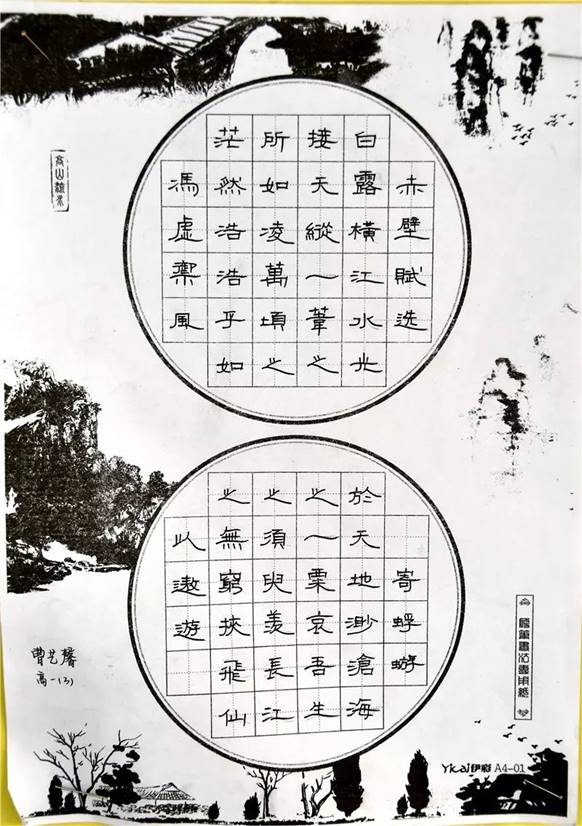 赤壁賦选
白露橫江水光
接天縱一葦之
所如凌萬頃之
茫然浩浩乎如
馮虛禦風
高山流水
寄蜉蝣
於天地渺滄海
之一粟哀吾生
之須臾羨長江
之無窮挾飛仙
以遨遊
曹艺馨
高一(3)
硬筆書法專用紙
Yicai伊彩 A4-01